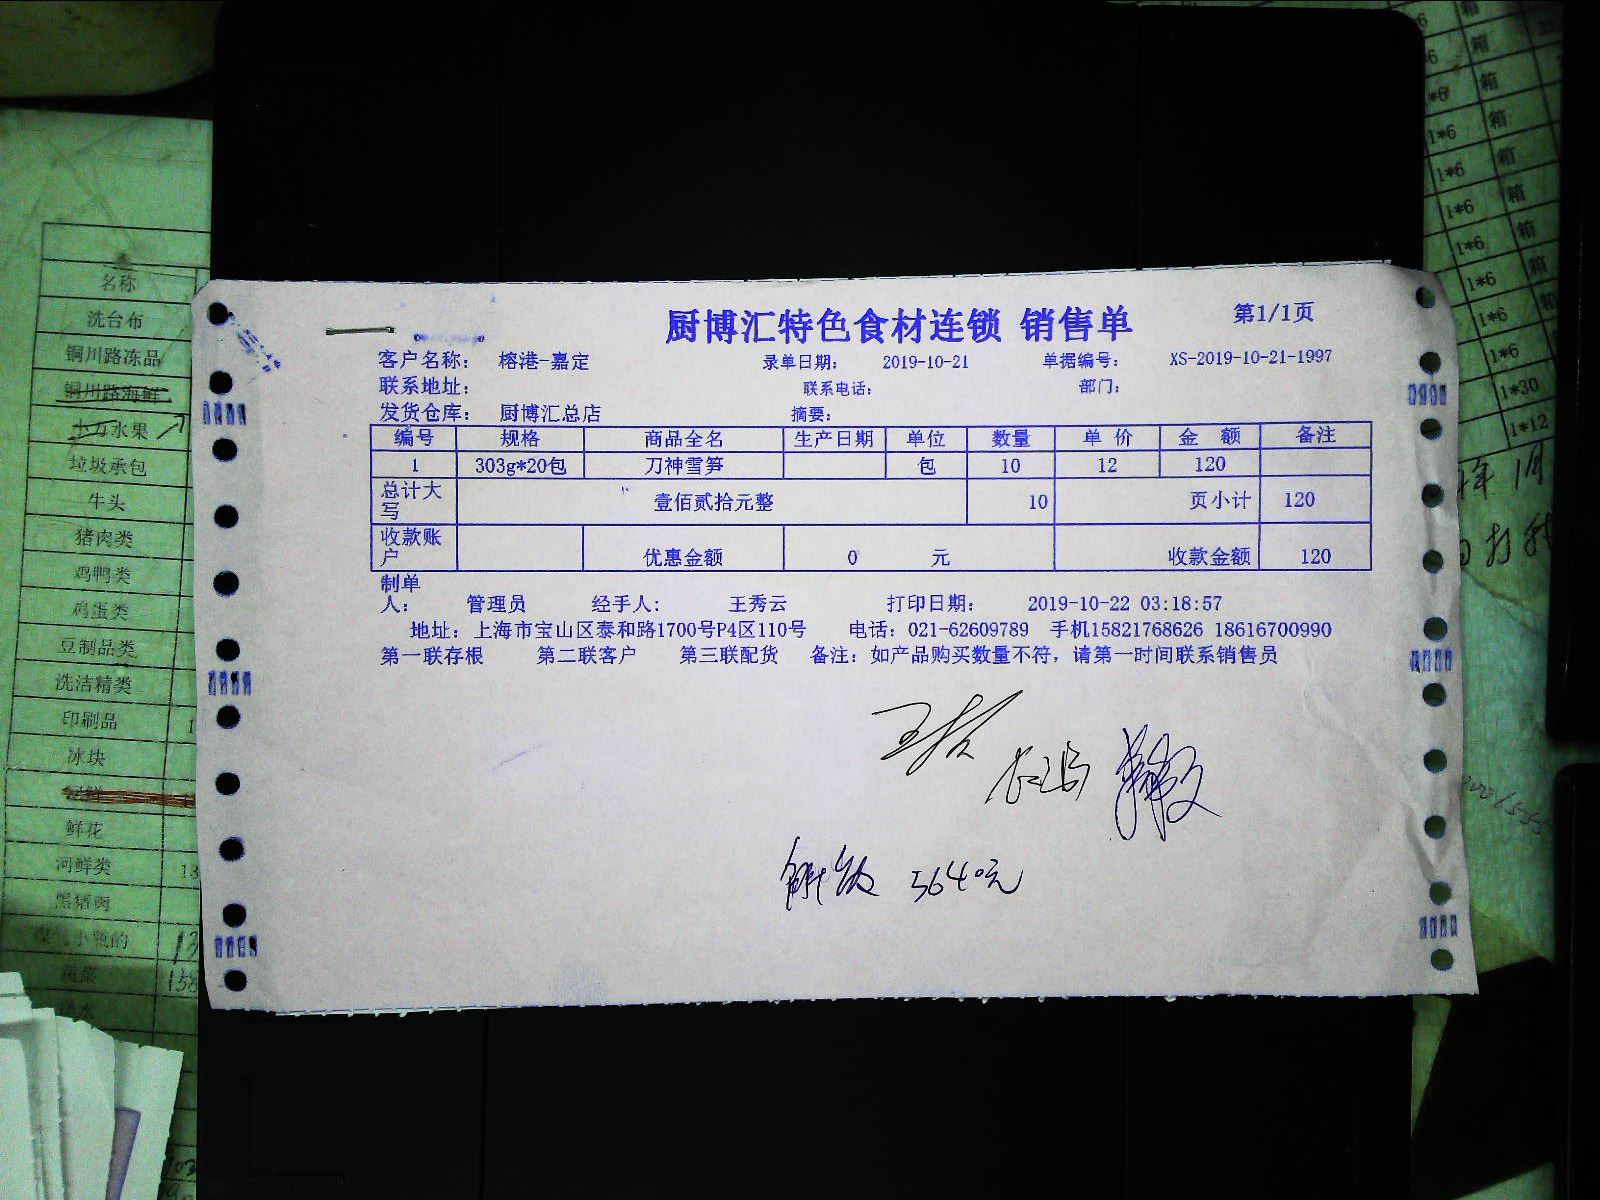 厨博汇特色食材连锁 销售单 第1/1页
客户名称： 榕港-嘉定 录单日期： 2019-10-21 单据编号： XS-2019-10-21-1997
联系地址： 联系电话： 部门：
发货仓库： 厨博汇总店 摘要：
编号 规格 商品全名 生产日期 单位 数量 单 价 金 额 备注
1 303g*20包 刀神雪笋 包 10 12 120
总计大写 壹佰贰拾元整 10 页小计 120
收款账户 优惠金额 0 元 收款金额 120
制单人： 管理员 经手人： 王秀云 打印日期： 2019-10-22 03:18:57
地址：上海市宝山区泰和路1700号P4区110号 电话：021-62609789 手机15821768626 18616700990
第一联存根 第二联客户 第三联配货 备注：如产品购买数量不符，请第一时间联系销售员
5640元
名称
洗台布
铜川路冻品
铜川路海鲜
水果
垃圾承包
牛头
猪肉类
鸡鸭类
鸡蛋类
豆制品类
洗洁精类
印刷品
冰块
鲜花
河鲜类
黑猪肉
蔬菜
1*6 箱
1*6 箱
1*6 箱
1*6 箱
1*6 箱
1*6 箱
1*6 箱
1*6
1*30
1*12